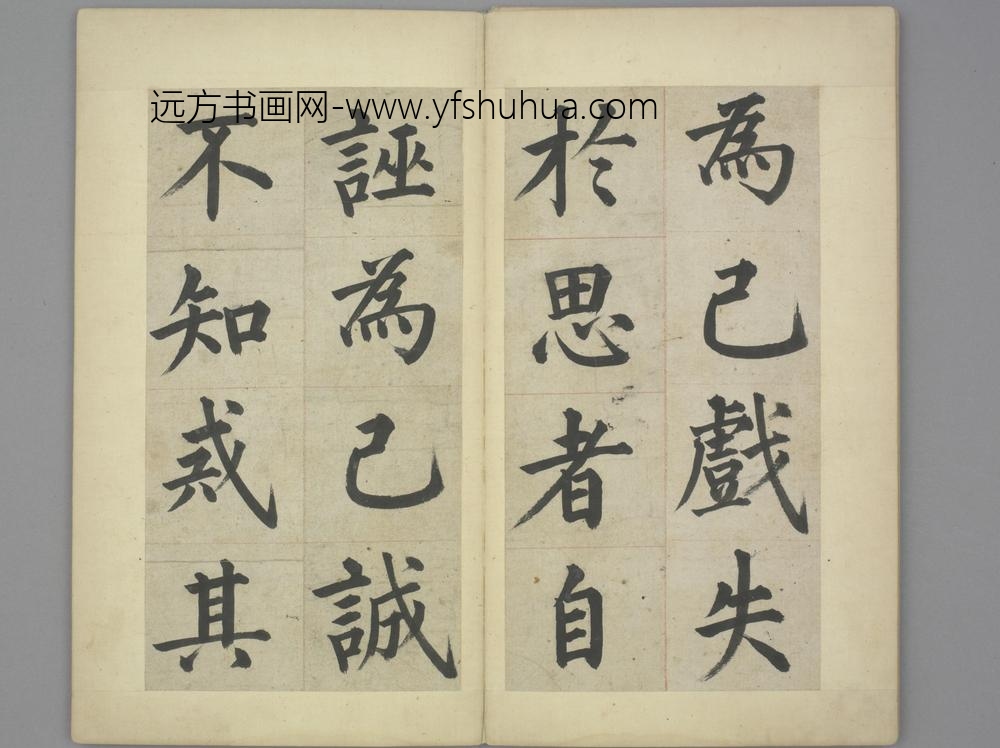 远方书画网-www.yfshuhua.com
為己戲失
於思者自
誣為己誠
不知戒其